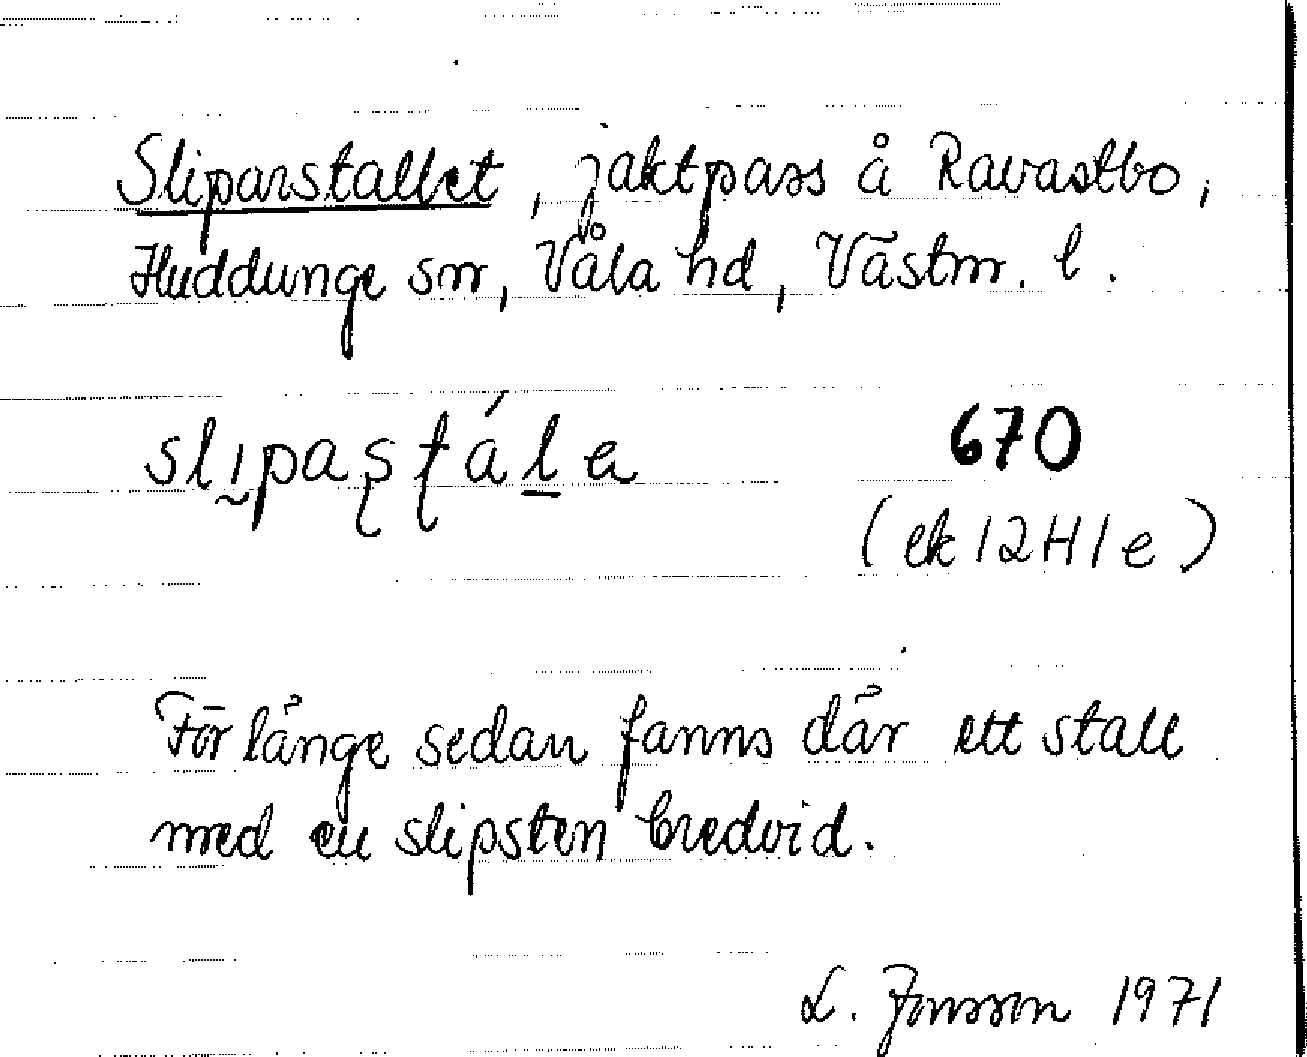 Sliparstallet, jaktpass å Ravastbo,
Huddunge sn, Våla hd, Västm. l.
slipaʂʈálɐ 670
(ek 12H1e)
För länge sedan fanns där ett stall
med en slipsten bredvid.
L. Jonsson 1971